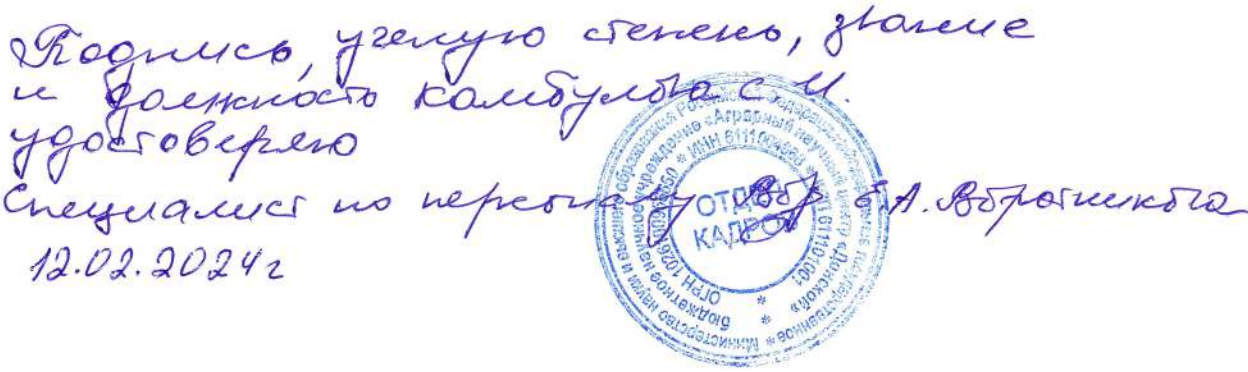 Подпись, ученую степень, звание
и должность Камбулова С.И.
удостоверяю
Специалист по персоналу Е.А. Воротникова
12.02.2024г
Министерство науки и высшего образования Российской Федерации
Федеральное государственное
бюджетное научное учреждение «Аграрный научный центр «Донской»
ОГРН ИНН
ОТДЕЛ
КАДРОВ